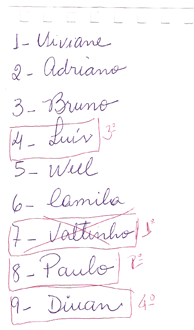 1- Viviane
2- Adriano
3- Bruno
4- Luiv 3º
5- Well
6- Camila
7- Valtinho 1º
8- Paulo 2º
9- Divan 4º